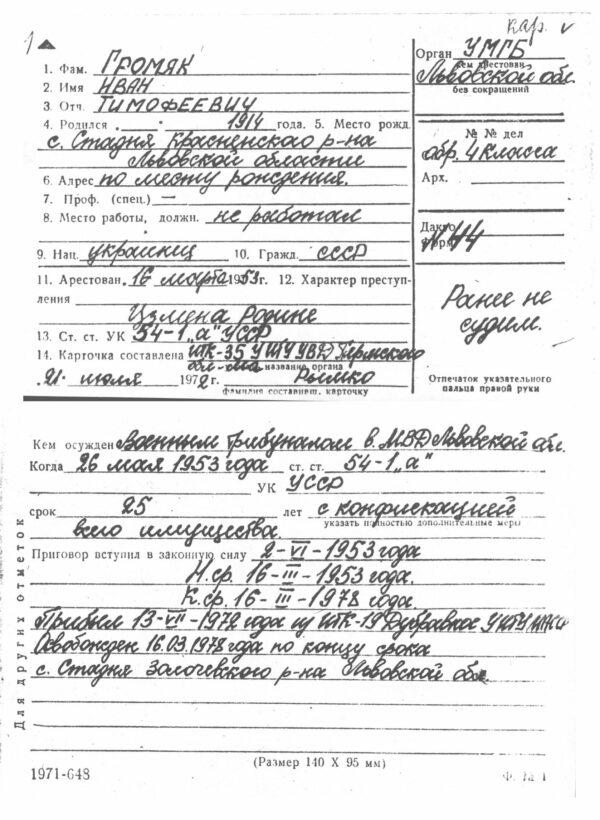 кар. v
1
Орган УМГБ
кем арестован
Львовской обл.
без сокращений
1. Фам. ГРОМЯК
2. Имя ИВАН
3. Отч. ТИМОФЕЕВИЧ
4. Родился 1914 года. 5. Место рожд.
с. Стадня Красненского р-на
Львовской области
6. Адрес по месту рождения.
7. Проф. (спец.) —
8. Место работы, должн. не работал
9. Нац. украинец 10. Гражд. СССР
11. Арестован 16 марта 1953 г. 12. Характер преступ-
ления
Измена Родине
13. Ст. ст. УК 54-1 „а" УССР
14. Карточка составлена ИТК-35 УИТУ УВД Пермского
обл-ма название органа
21 июля 1972 г. Рымко
фамилия составивш. карточку
№ № дел
обр. 4 класса
Арх.
Дакто
форм
Ранее не
судим.
Отпечаток указательного
пальца правой руки
Кем осужден Военным трибуналом в. МВД Львовской обл.
Когда 26 мая 1953 года ст. ст. 54-1 „а"
УК УССР
срок 25 лет с конфискацией
указать полностью дополнительные меры
всего имущества.
Приговор вступил в законную силу 2-VI-1953 года
Н.ср. 16-III-1953 года.
К.ср. 16-III-1978 года.
Прибыл 13-VII-1972 года из ИТК-19 Дубравное УИТУ
Освобожден 16.03.1978 года по концу срока
с. Стадня Золочевского р-на Львовской обл.
Для других отметок
(Размер 140 X 95 мм)
1971-648